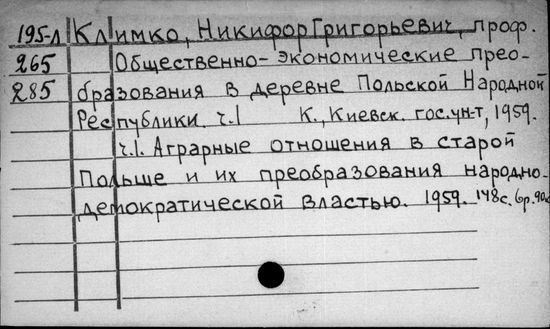 195-л Климко, Никифор Григорьевич, проф.
265 Общественно-экономические прео-
285 бразования в деревне Польской Народной
Республики. ч.1 К., Киевск. гос.ун-т, 1959.
ч.1. Аграрные отношения в старой
Польше и их преобразования народно-
демократической властью. 1959. 148с. 6р.90к